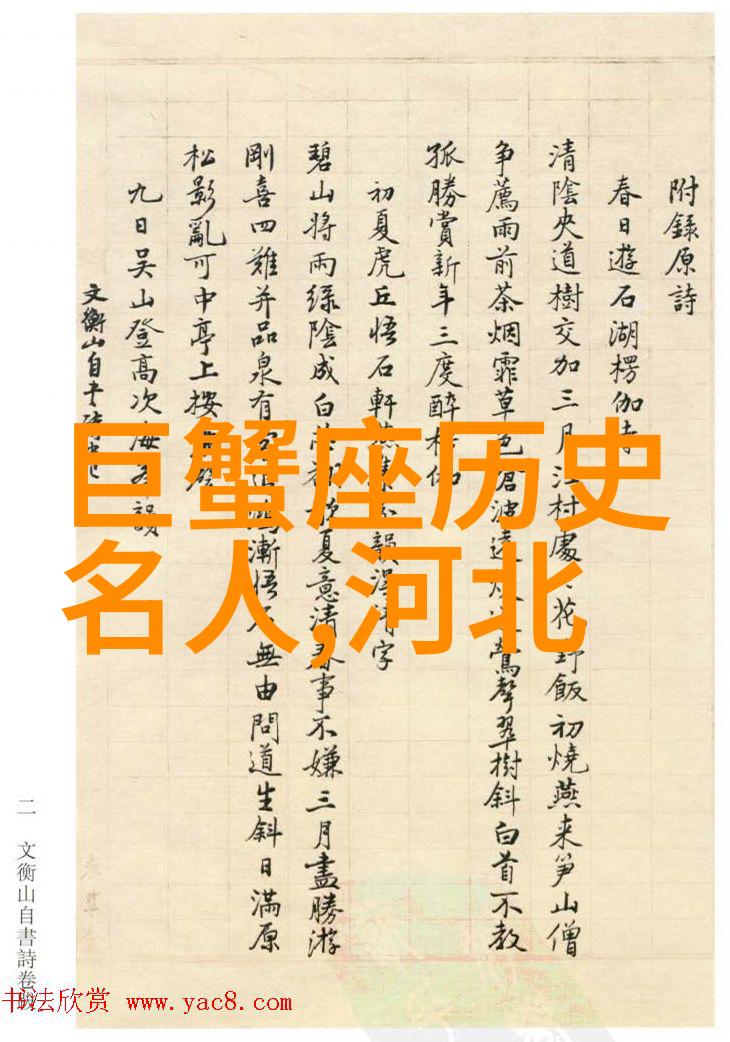 附錄原詩
春日遊石湖楞伽寺
清陰夾道樹交加三月江村處花野飯初燒燕来笋山僧
争薦雨前茶烟霏草色滄波遠鶯聲翠樹斜白首不教
孤勝賞新年三度醉
初夏虎丘悟石軒燕集分韻得清字
碧山將雨緑陰成白夏意清春事不嫌三月盡勝游
剛喜四難并品泉有漸悟石無由問道生斜日滿原
松影亂可中亭上按
九日吴山登高次海韻
文衡山自
巨蟹座历史
名人,河北
二 文衡山自書詩卷跋
书法欣赏 www.yac8.com